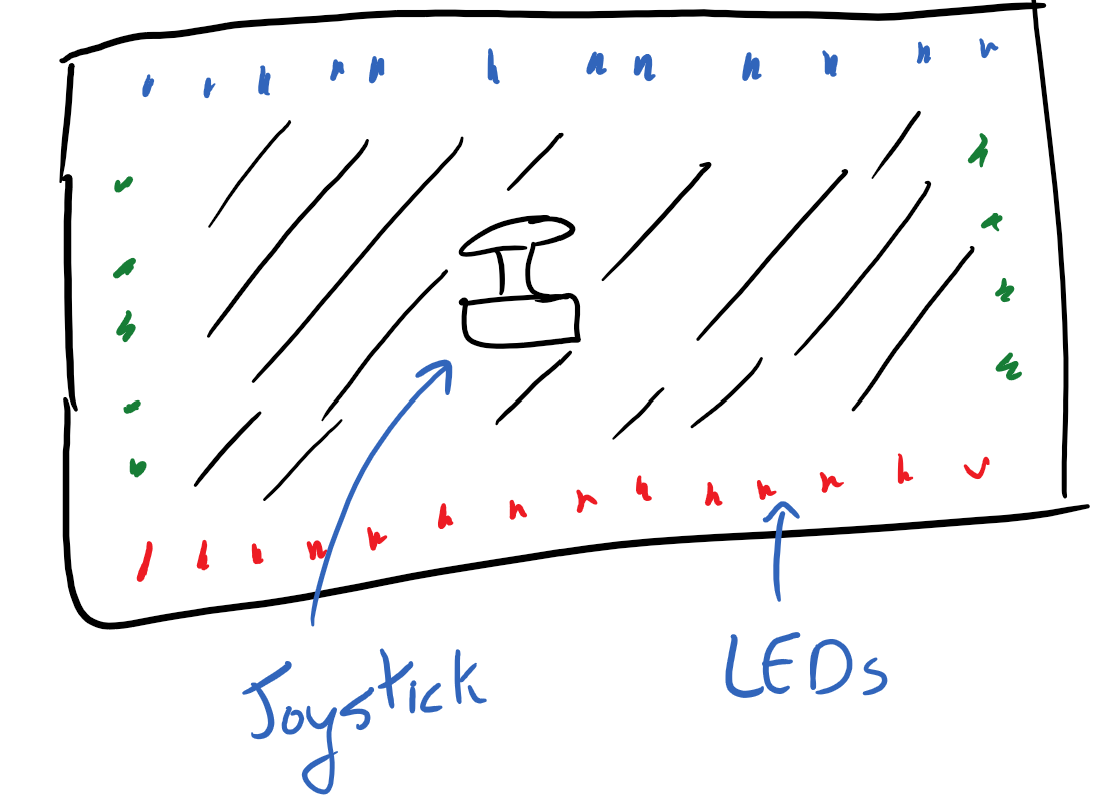 Joystick
LEDs